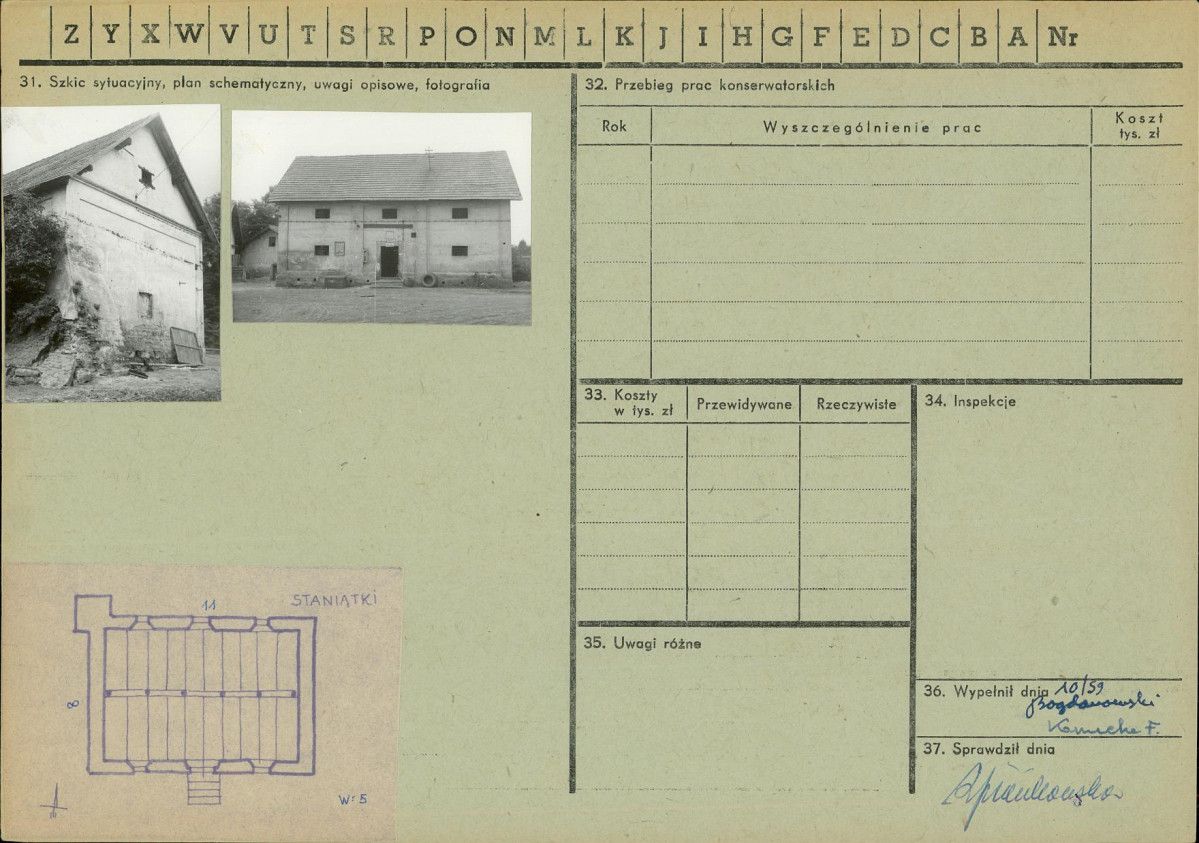 Z Y X W V U T S R P O N M L K J I H G F E D C B A Nr
31. Szkic sytuacyjny, plan schematyczny, uwagi opisowe, fotografia
11
STANIĄTKI
8
W:5
32. Przebieg prac konserwatorskich
Rok
Wyszczególnienie prac
Koszt
tys. zł
33. Koszty
w tys. zł
Przewidywane
Rzeczywiste
34. Inspekcje
35. Uwagi różne
36. Wypełnił dnia 10/59
Bogdanowski
37. Sprawdził dnia